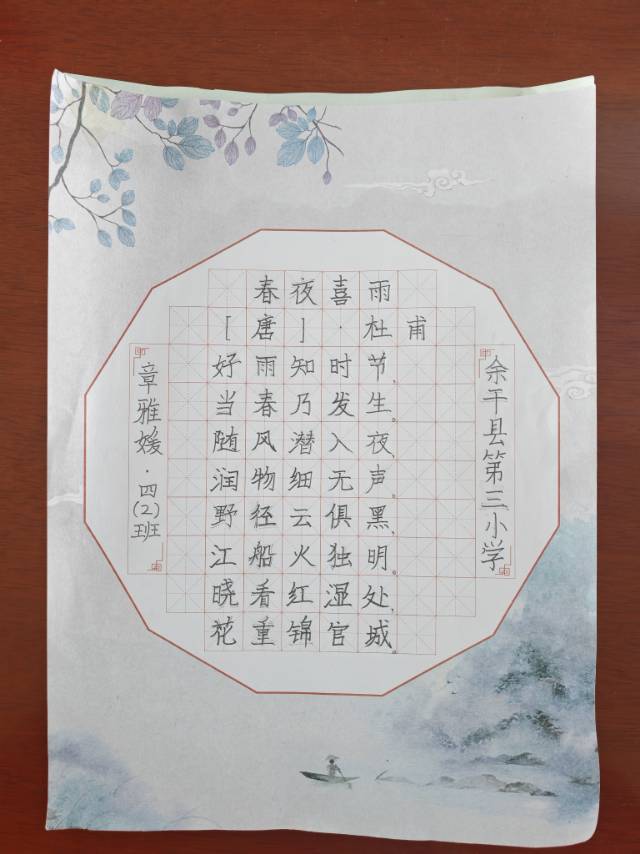 春夜喜雨
[唐]·杜甫
好雨知时节，
当春乃发生。
随风潜入夜，
润物细无声。
野径云俱黑，
江船火独明。
晓看红湿处，
花重锦官城。
余干县第三小学
章雅媛·四(2)班